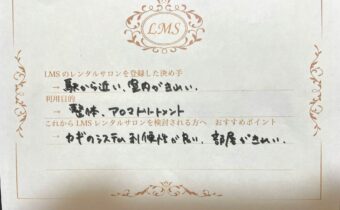 LMS
LMSのレンタルサロンを登録した決め手
→ 駅から近い、室内がきれい。
利用目的
→ 整体、アロマトリートメント
これからLMSレンタルサロンを検討される方へ おすすめポイント
→ カギのシステム利便性が良い、部屋がきれい。